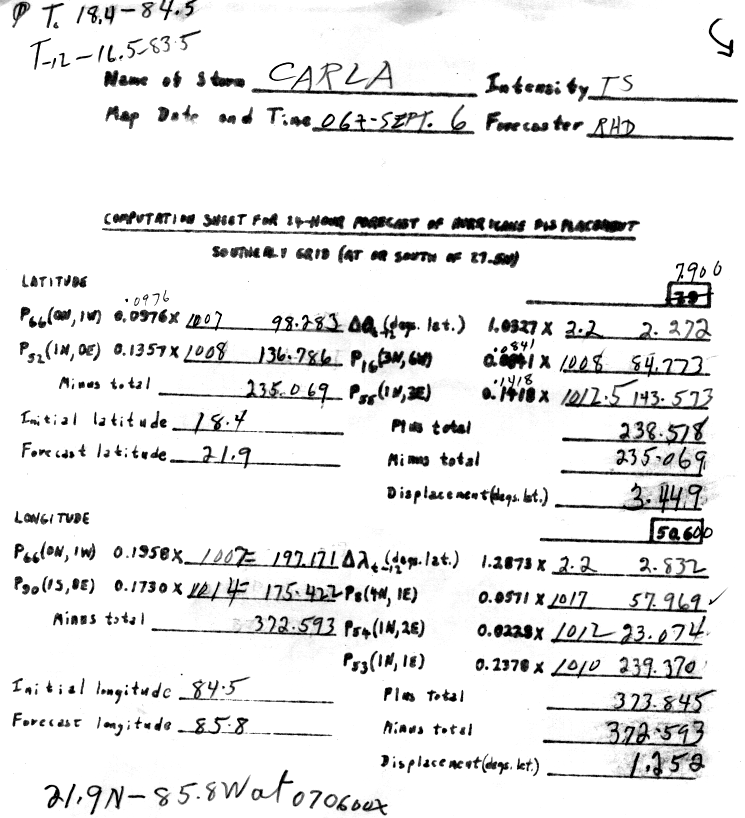 P T. 18.4-84.5
T-12-16.5-83.5
Name of Storm CARLA Intensity TS
Map Date and Time 06Z-SEPT. 6 Forecaster RHD
COMPUTATION SHEET FOR 24-HOUR FORECAST OF HURRICANE DISPLACEMENT
SOUTHERLY GRID (AT OR SOUTH OF 27.5N)
7.900
LATITUDE
.0976
P66(0N, 1W) 0.0976 x 1007 98.283 Δθt-12 (degs. lat.) 1.0327 x 2.2 2.272
.0841
P52(1N, 0E) 0.1357 x 1008 136.786 P16(3N, 6W) 0.0841 x 1008 84.773
.1418
Minus total 235.069 P55(1N, 3E) 0.1418 x 1012.5 143.573
Initial latitude 18.4 Plus total 238.518
Forecast latitude 21.9 Minus total 235.069
Displacement (degs. lat.) 3.449
LONGITUDE 50.600
P66(0N, 1W) 0.1958 x 1007= 197.171 Δλt-12 (degs. lat.) 1.2873 x 2.2 2.832
P90(1S, 8E) 0.1730 x 1014= 175.422 P8(4N, 1E) 0.0571 x 1017 57.969 ✓
Minus total 372.593 P54(1N, 2E) 0.0228 x 1012 23.074
P53(1N, 1E) 0.2370 x 1010 239.370
Initial longitude 84.5 Plus Total 373.845
Forecast longitude 85.8 Minus total 372.593
Displacement (degs. lat.) 1.252
21.9N-85.8W at 070600Z